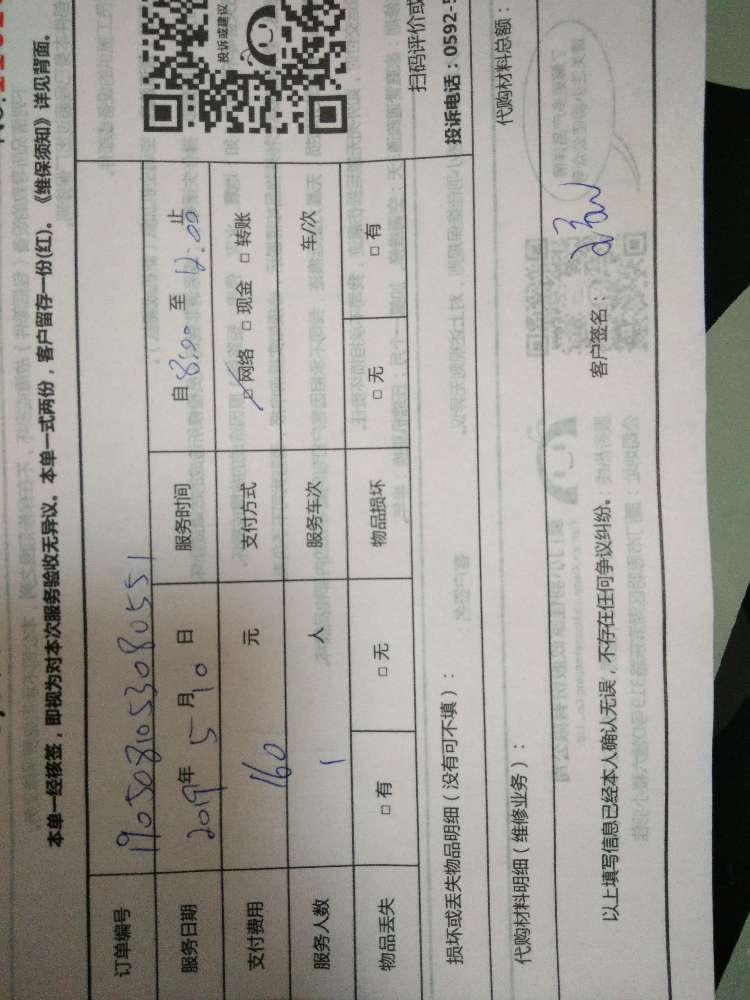 本单一经核签，即视为对本次服务验收无异议。本单一式两份，客户留存一份(红)。《维保须知》详见背面。
订单编号 1905081053080551
投诉或建议
服务日期 2019年 5 月 10 日 服务时间 自 8:00 至 12:00 止
支付费用 160 元 支付方式 □网络 □ 现金 □ 转账
服务人数 1 人 服务车次 车/次
物品丢失 □ 有 □ 无 物品损坏 □ 无 □ 有
扫码评价或
损坏或丢失物品明细（没有可不填）：
投诉电话：0592-5
代购材料明细（维修业务）： 代购材料总额：
以上填写信息已经本人确认无误，不存在任何争议纠纷。 客户签名：